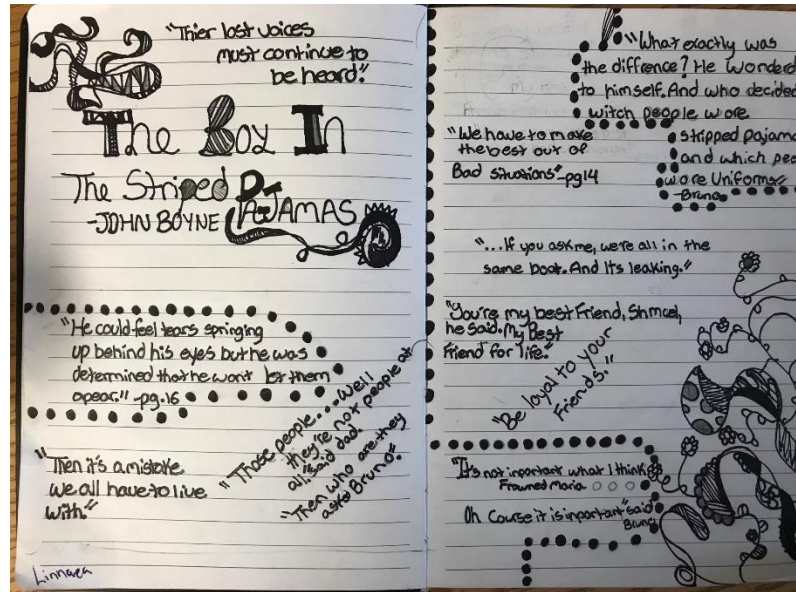 "Thier lost voices
must continue to
be heard".
The Boy In
The Striped PAJAMAS
-JOHN BOYNE
"He could feel tears springing
up behind his eyes but he was
determined that he won't let them
apear." -pg.16
"Those people... Well
they're not people at
all," said dad.
"Then who are they
asks Bruno".
"Then it's a mistake
we all have to live
with."
Linnaea
"What exactly was
the diffrence? He Wonderd
to himself. And who decided
witch people wore
stripped pajama
and which peo
wore Uniforms"
-Bruno
"We have to make
the best out of
Bad situations" -pg14
"...If you ask me, we're all in the
same boat. And Its leaking."
"You're my best Friend, Shmuel,
he said. My Best
Friend for life."
"Be loyal to your
Friends."
"It's not important what I think,"
Frowned Maria
Oh Course it is important" said
Bruno